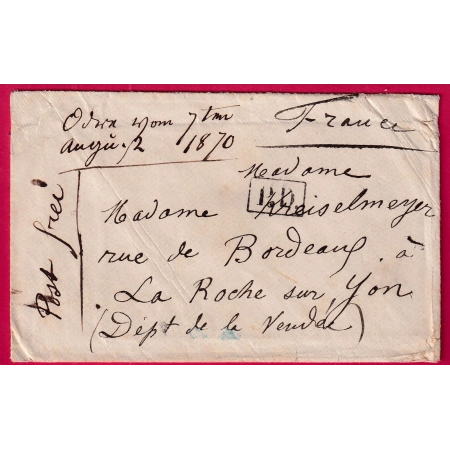 Odre vom 7ten
augu. 2 1870
France
Post frei
Madame
P.D.
Madame Kreiselmeyer
rue de Bordeaux. à
La Roche sur Yon
(Dépt de la Vendée)